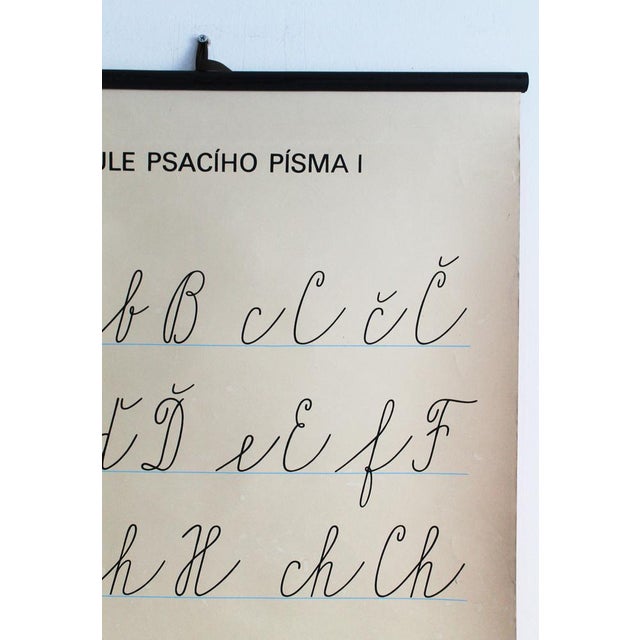 ULE PSACÍHO PÍSMA I
b B c C č Č
ď Ď e E f F
h H ch Ch